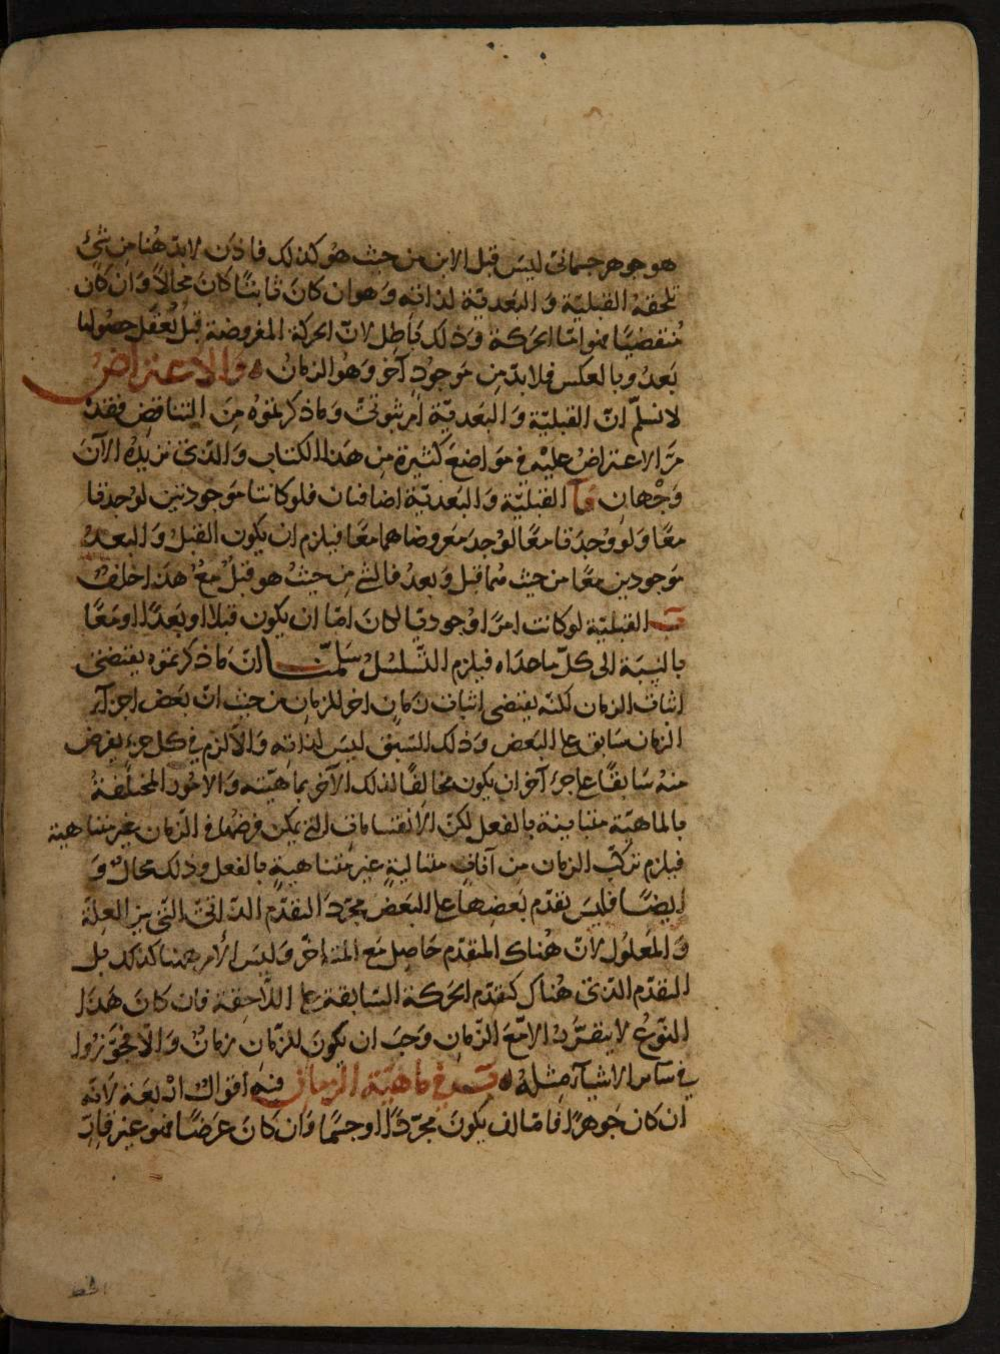 هو جوهر جسمانى ليس قبل الابن من حيث هو كذلك فاذن لابدّ هنا من شئ
تلحقه القبليّة و البعديّة لذاته و هو ان كان ثابتًا كان محالاً وان كان
منقضيًا فهو امّا الحركة وذلك باطل لانّ الحركة المفروضة قبل يُعقل حصولها
بعدُ وبالعكس فلابدّ من موجودٍ آخر وهو الزمانُ ه والاعتراضُ
لا نسلّم انّ القبليّة و البعديّة امر ثبوتىّ وماذكرتموه من التناقض فقد
مرّ الاعتراض عليه فى مواضع كثيرة من هذا الكتاب والذى نزيدُه الآن
وجهان آ القبليّة و البعديّة اضافتان فلو كانتا موجودتين لوجدتا
معًا ولو وُجدتا معًا لوُجد معروضاهما معًا فيلزم ان يكون القبل و البعدُ
موجودين معًا من حيث هما قبل وبعدُ فالشئ من حيثُ هو قبلُ معُ هذا خلف
ب القبليّة لو كانت امرًا وجوديّا لكان امّا ان يكون قبلا او بعدًا او معًا
بالنسبة الى كلّ ما عداه فيلزم التسلسلُ سلّمنا انّ ماذكرتموه يقتضى
اثبات الزمان لكنّه يقتضى اثبات زمانٍ اخر للزمان من حيث انّ بعض اجزآءِ
الزمان سابق على البعض وذلك السّبق ليس لذاته والّا لزم فى كل جزء يفرض
منه سابقًا على جزء آخر ان يكون مخالفًا لذلك الآخر بماهيّته و الامور المختلفة
بالماهيّة متباينة بالفعل لكنّ الانقسامات التى يمكن فرضها فى الزمان غير متناهية
فيلزم تركّب الزمان من آناتٍ متتاليةٍ غير متناهيةٍ بالفعل وذلك محالٌ و
ايضًا فليس تقدّم بعضها على البعض مجرّد التقدّم الذاتىّ الّتى بين العلّة
والمعلول لانّ هُناك المتقدّم حَاصل مع المتاخّر وليس الأمر ههنا كذلك بل
التقدّم الذى هُناك كتقدّم الحركة السّابقة على اللّاحقة فان كان هذا
النّوعُ لا يتقرّر الا مع الزّمان وجب ان يكون للزّمان زمانٌ والّا فجوّزوا
فى سآئر الاشيآء مثلهُ ه فى ماهيّة الزمان فيه اقوال اربعة لانّه
ان كان جوهرًا فامّا ان يكون مجرّدًا او جسمًا وان كان عرضًا فهو غير قارّ